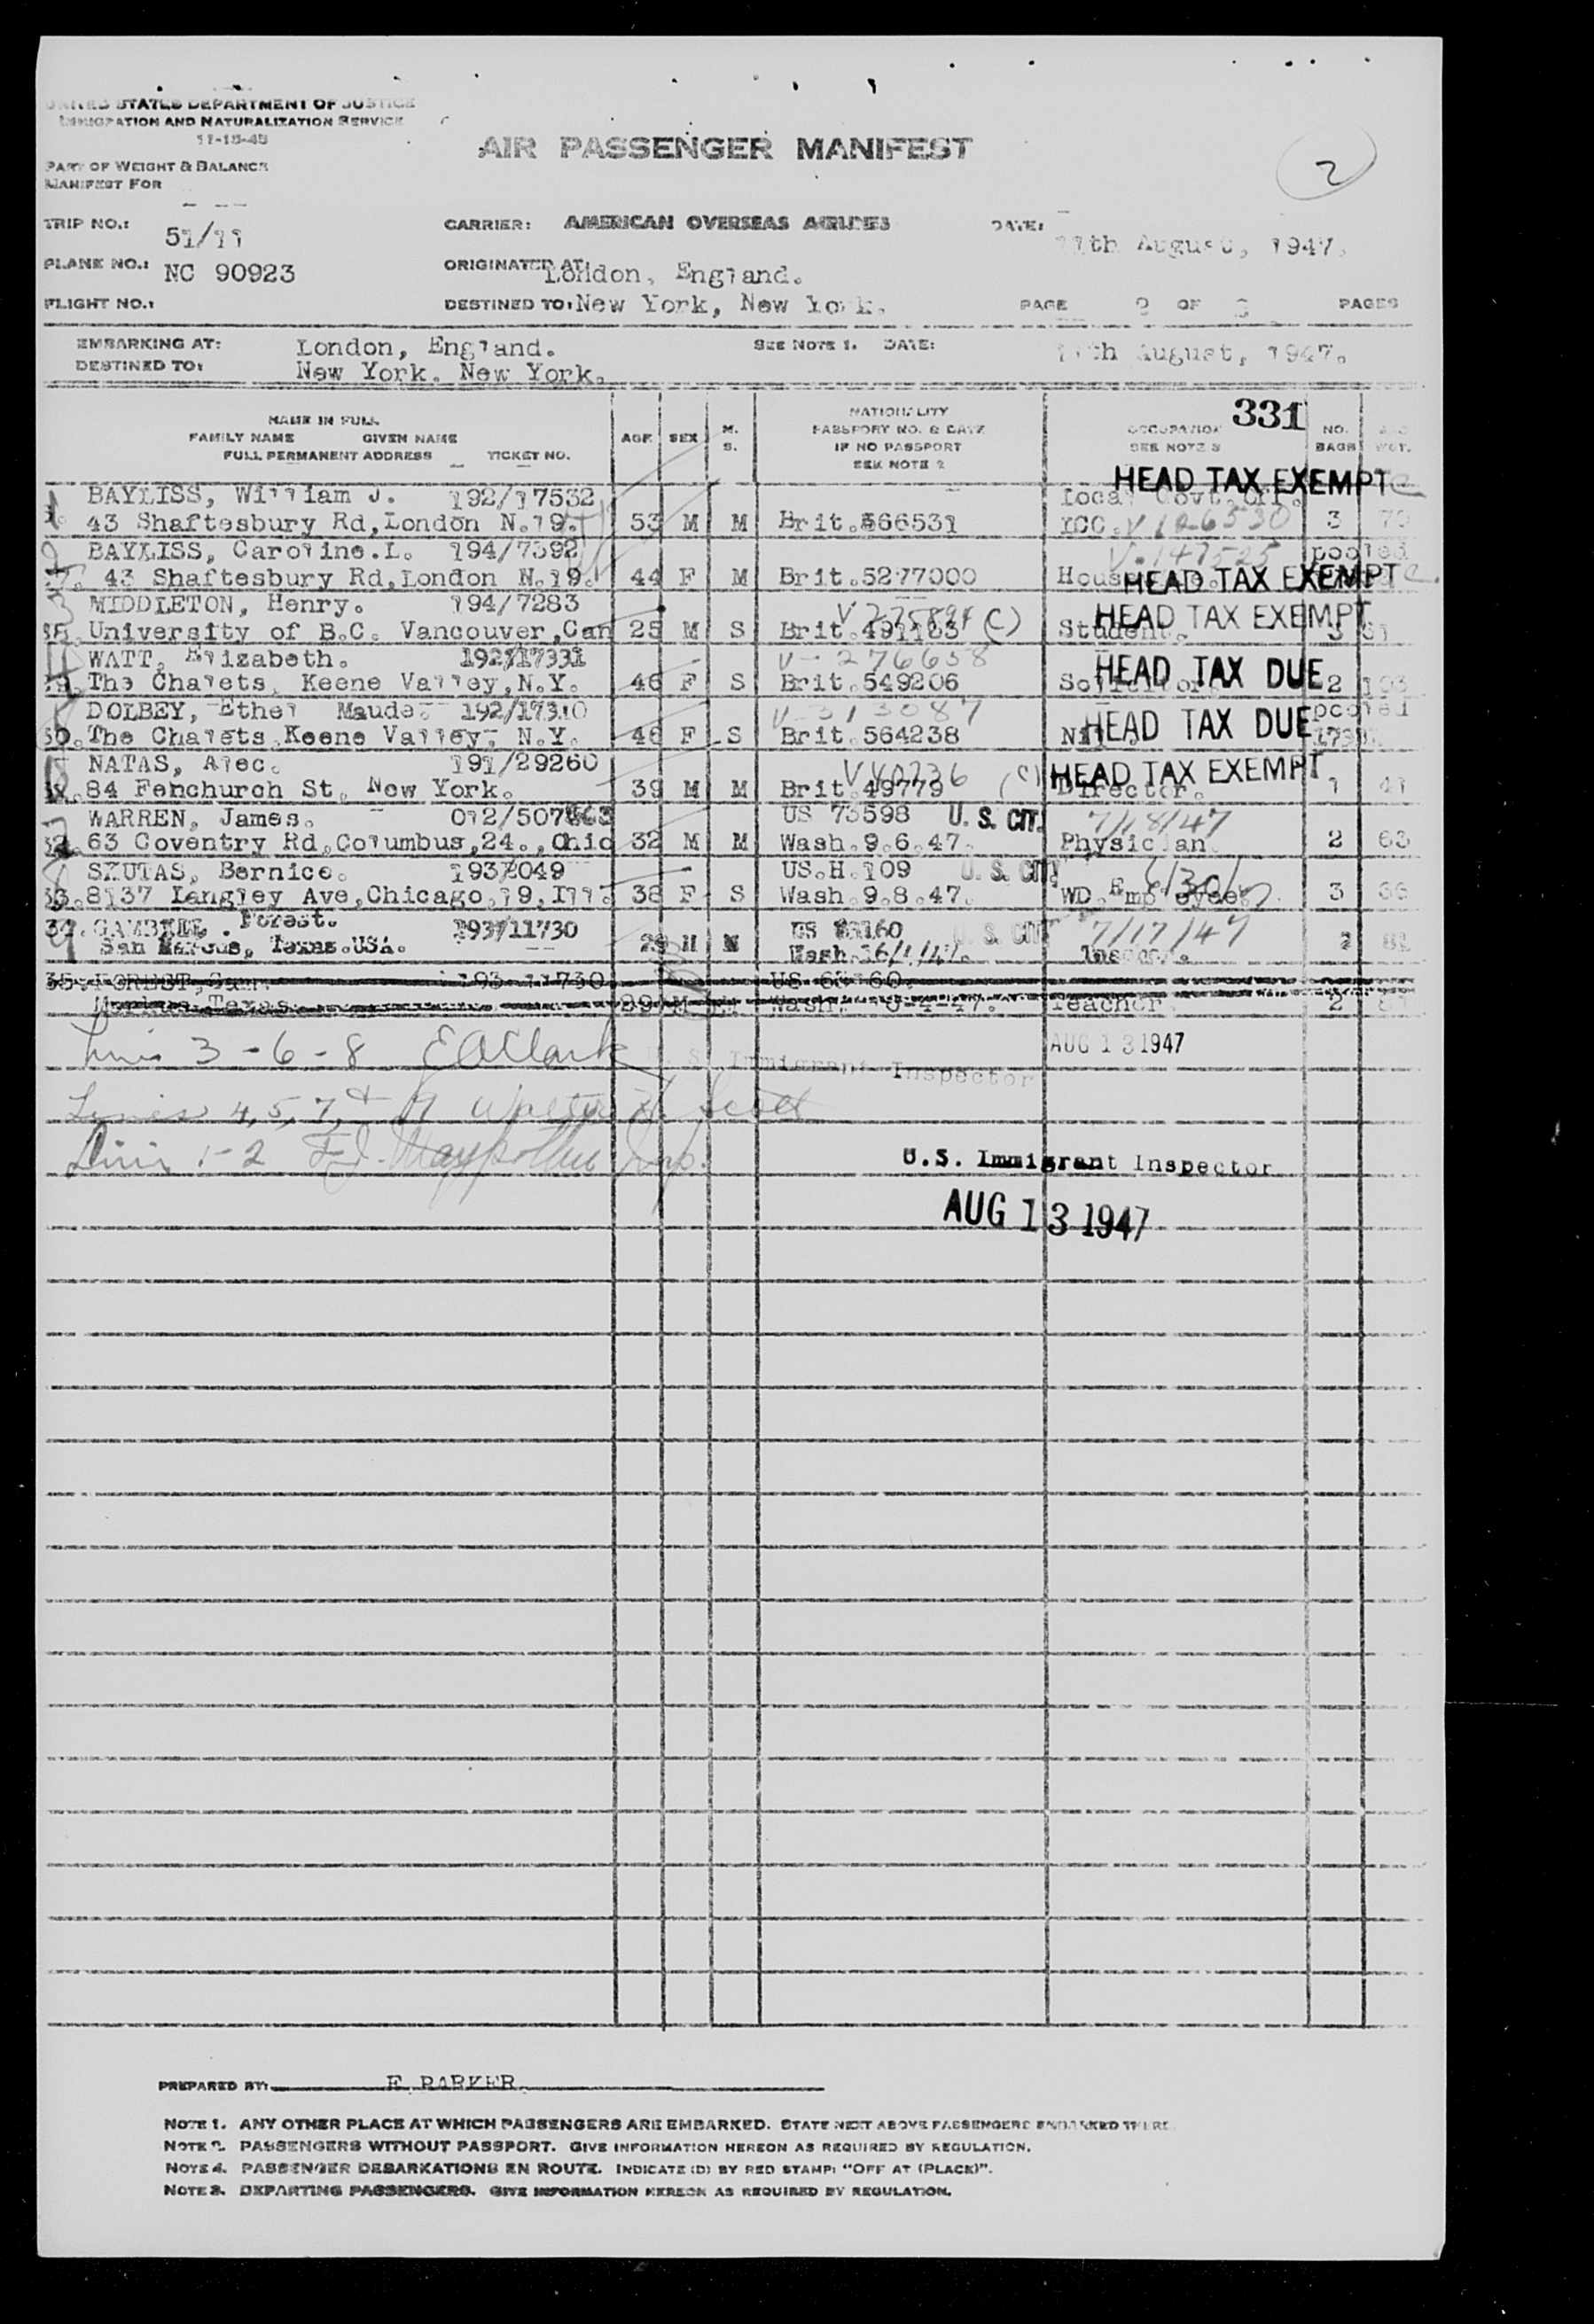 UNITED STATES DEPARTMENT OF JUSTICE
IMMIGRATION AND NATURALIZATION SERVICE
11-18-45
AIR PASSENGER MANIFEST
2
PART OF WEIGHT & BALANCE
MANIFEST FOR
TRIP NO.: 51/11 CARRIER: AMERICAN OVERSEAS AIRLINES DATE: 11th August, 1947.
PLANE NO.: NC 90923 ORIGINATED AT: London, England.
FLIGHT NO.: DESTINED TO: New York, New York. PAGE 2 OF PAGES
EMBARKING AT: London, England. SEE NOTE 1. DATE: 11th August, 1947.
DESTINED TO: New York. New York.
331
NAME IN FULL
FAMILY NAME GIVEN NAME
FULL PERMANENT ADDRESS TICKET NO.
AGE SEX M. S.
NATIONALITY
PASSPORT NO. & DATE
IF NO PASSPORT
SEE NOTE 2
OCCUPATION
SEE NOTE 3
NO. BAGS
WGT.
HEAD TAX EXEMPT
BAYLISS, William J. 192/17532 Local Govt.
43 Shaftesbury Rd, London N.19. 53 M M Brit.566531 LCC. V 126530 3 70
BAYLISS, Caroline.L. 194/7392 V-147525 pooled
43 Shaftesbury Rd, London N.19. 44 F M Brit.5277000 HEAD TAX EXEMPT
MIDDLETON, Henry. 194/7283 (C) HEAD TAX EXEMPT
University of B.C. Vancouver, Can 25 M S Brit.491183 Student. 3 61
WATT, Elizabeth. 192/17331 V-276658 HEAD TAX DUE
The Chalets, Keene Valley, N.Y. 46 F S Brit.549206 Solicitor. 2 103
DOLBEY, Ethel Maude. 192/17310 V-313087 HEAD TAX DUE pooled
30. The Chalets, Keene Valley, N.Y. 46 F S Brit.564238 Nil
NATAS, Alec. 191/29260 V40236 (C) HEAD TAX EXEMPT
84 Fenchurch St. New York. 39 M M Brit.49779 Director. 1 41
WARREN, James. 012/507863 US 73598 U. S. CIT. 7/18/47
63 Coventry Rd, Columbus, 24., Ohio 32 M M Wash. 9.6.47. Physician. 2 63
SZUTAS, Bernice. 193/2049 US.H.109 U. S. CIT.
33. 8137 Langley Ave, Chicago.19, Ill. 38 F S Wash. 9.8.47. WD. Employee. 3 66
34. GAMBELL. Forest. 193/11730 U. S. CIT. 7/17/47
San Marcus, Texas. USA. 29 M
35. FOREST, 193 11730
Texas Teacher 2
3-6-8 EAClark U. S. Immigrant Inspector AUG 13 1947
Lines 4, 5, 7, + 9 Scott
1-2
U.S. Immigrant Inspector
AUG 13 1947
PREPARED BY: E. PARKER
NOTE 1. ANY OTHER PLACE AT WHICH PASSENGERS ARE EMBARKED. STATE NEXT ABOVE PASSENGERS EMBARKED THERE
NOTE 2. PASSENGERS WITHOUT PASSPORT. GIVE INFORMATION HEREON AS REQUIRED BY REGULATION.
NOTE 4. PASSENGER DEBARKATIONS EN ROUTE. INDICATE (D) BY RED STAMP: "OFF AT (PLACE)".
NOTE 3. DEPARTING PASSENGERS. GIVE INFORMATION HEREON AS REQUIRED BY REGULATION.